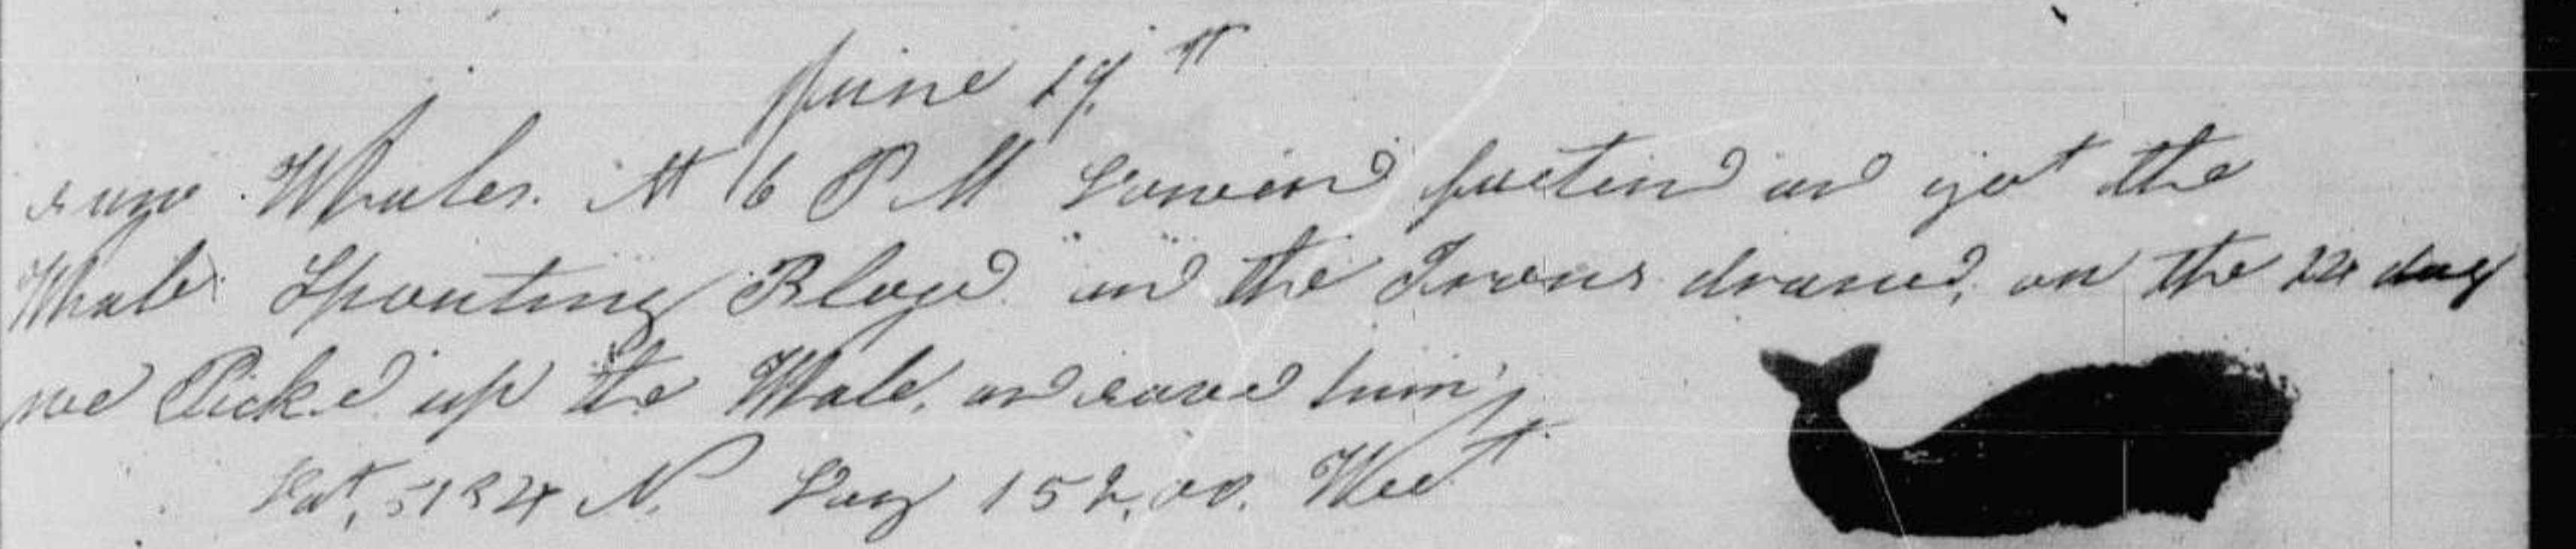 June 19th
saw Whales. At 6 P M Lowerd fastend and got the
Whale Spouting Blood and the Irons drawed, on the 24 day
we Picked up the Whale, and saved him,
Lat, 51 34 N. Long 152,00. West